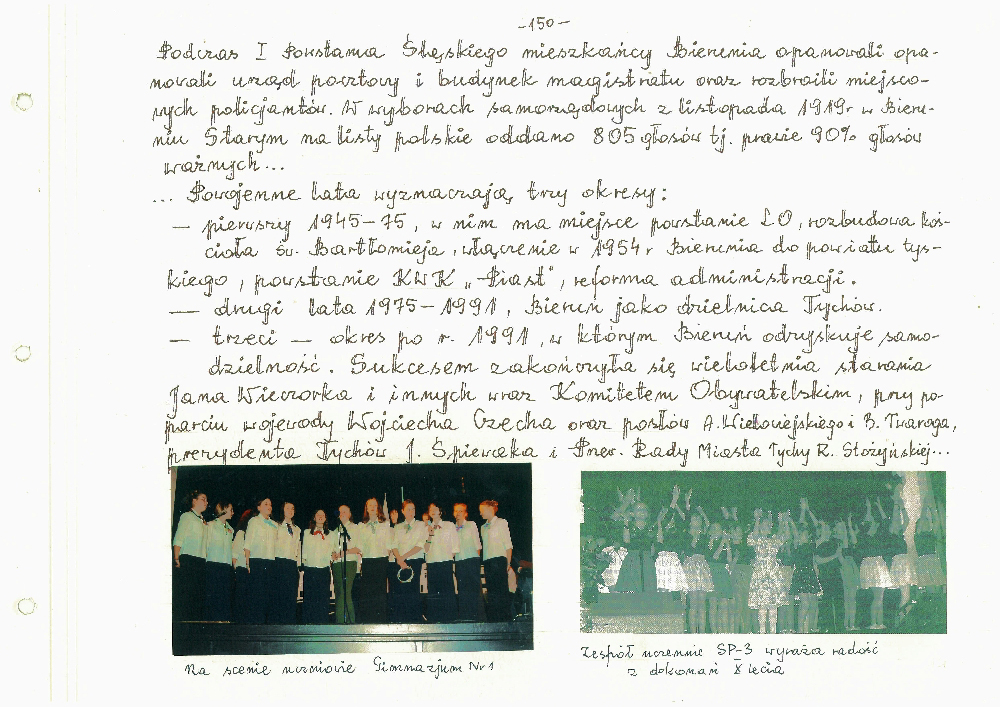 -150-
Podczas I Powstania Śląskiego mieszkańcy Bierunia opanowali opa-
nowali urząd pocztowy i budynek magistratu oraz rozbroili miejsco-
wych policjantów. W wyborach samorządowych z listopada 1919r w Bieru-
niu Starym na listy polskie oddano 805 głosów tj. prawie 90% głosów
ważnych...
... Powojenne lata wyznaczają trzy okresy:
— pierwszy 1945-75, w nim ma miejsce powstanie LO, rozbudowa koś-
cioła św. Bartłomieja, włączenie w 1954r Bierunia do powiatu tys-
kiego, powstanie KWK „Piast", reforma administracji.
— drugi lata 1975-1991, Bieruń jako dzielnica Tychów.
— trzeci — okres po r. 1991, w którym Bieruń odzyskuje samo-
dzielność. Sukcesem zakończyła się wieloletnia starania
Jana Wieczorka i innych wraz Komitetem Obywatelskim, przy po-
parciu wojewody Wojciecha Czecha oraz posłów A. Wielowiejskiego i B. Twaroga,
prezydenta Tychów J. Śpiewaka i Przew. Rady Miasta Tychy R. Stożyńskiej...
Na scenie uczniowie Gimnazjum Nr 1
Zespół uczennic SP-3 wyraża radość
z dokonań X lecia